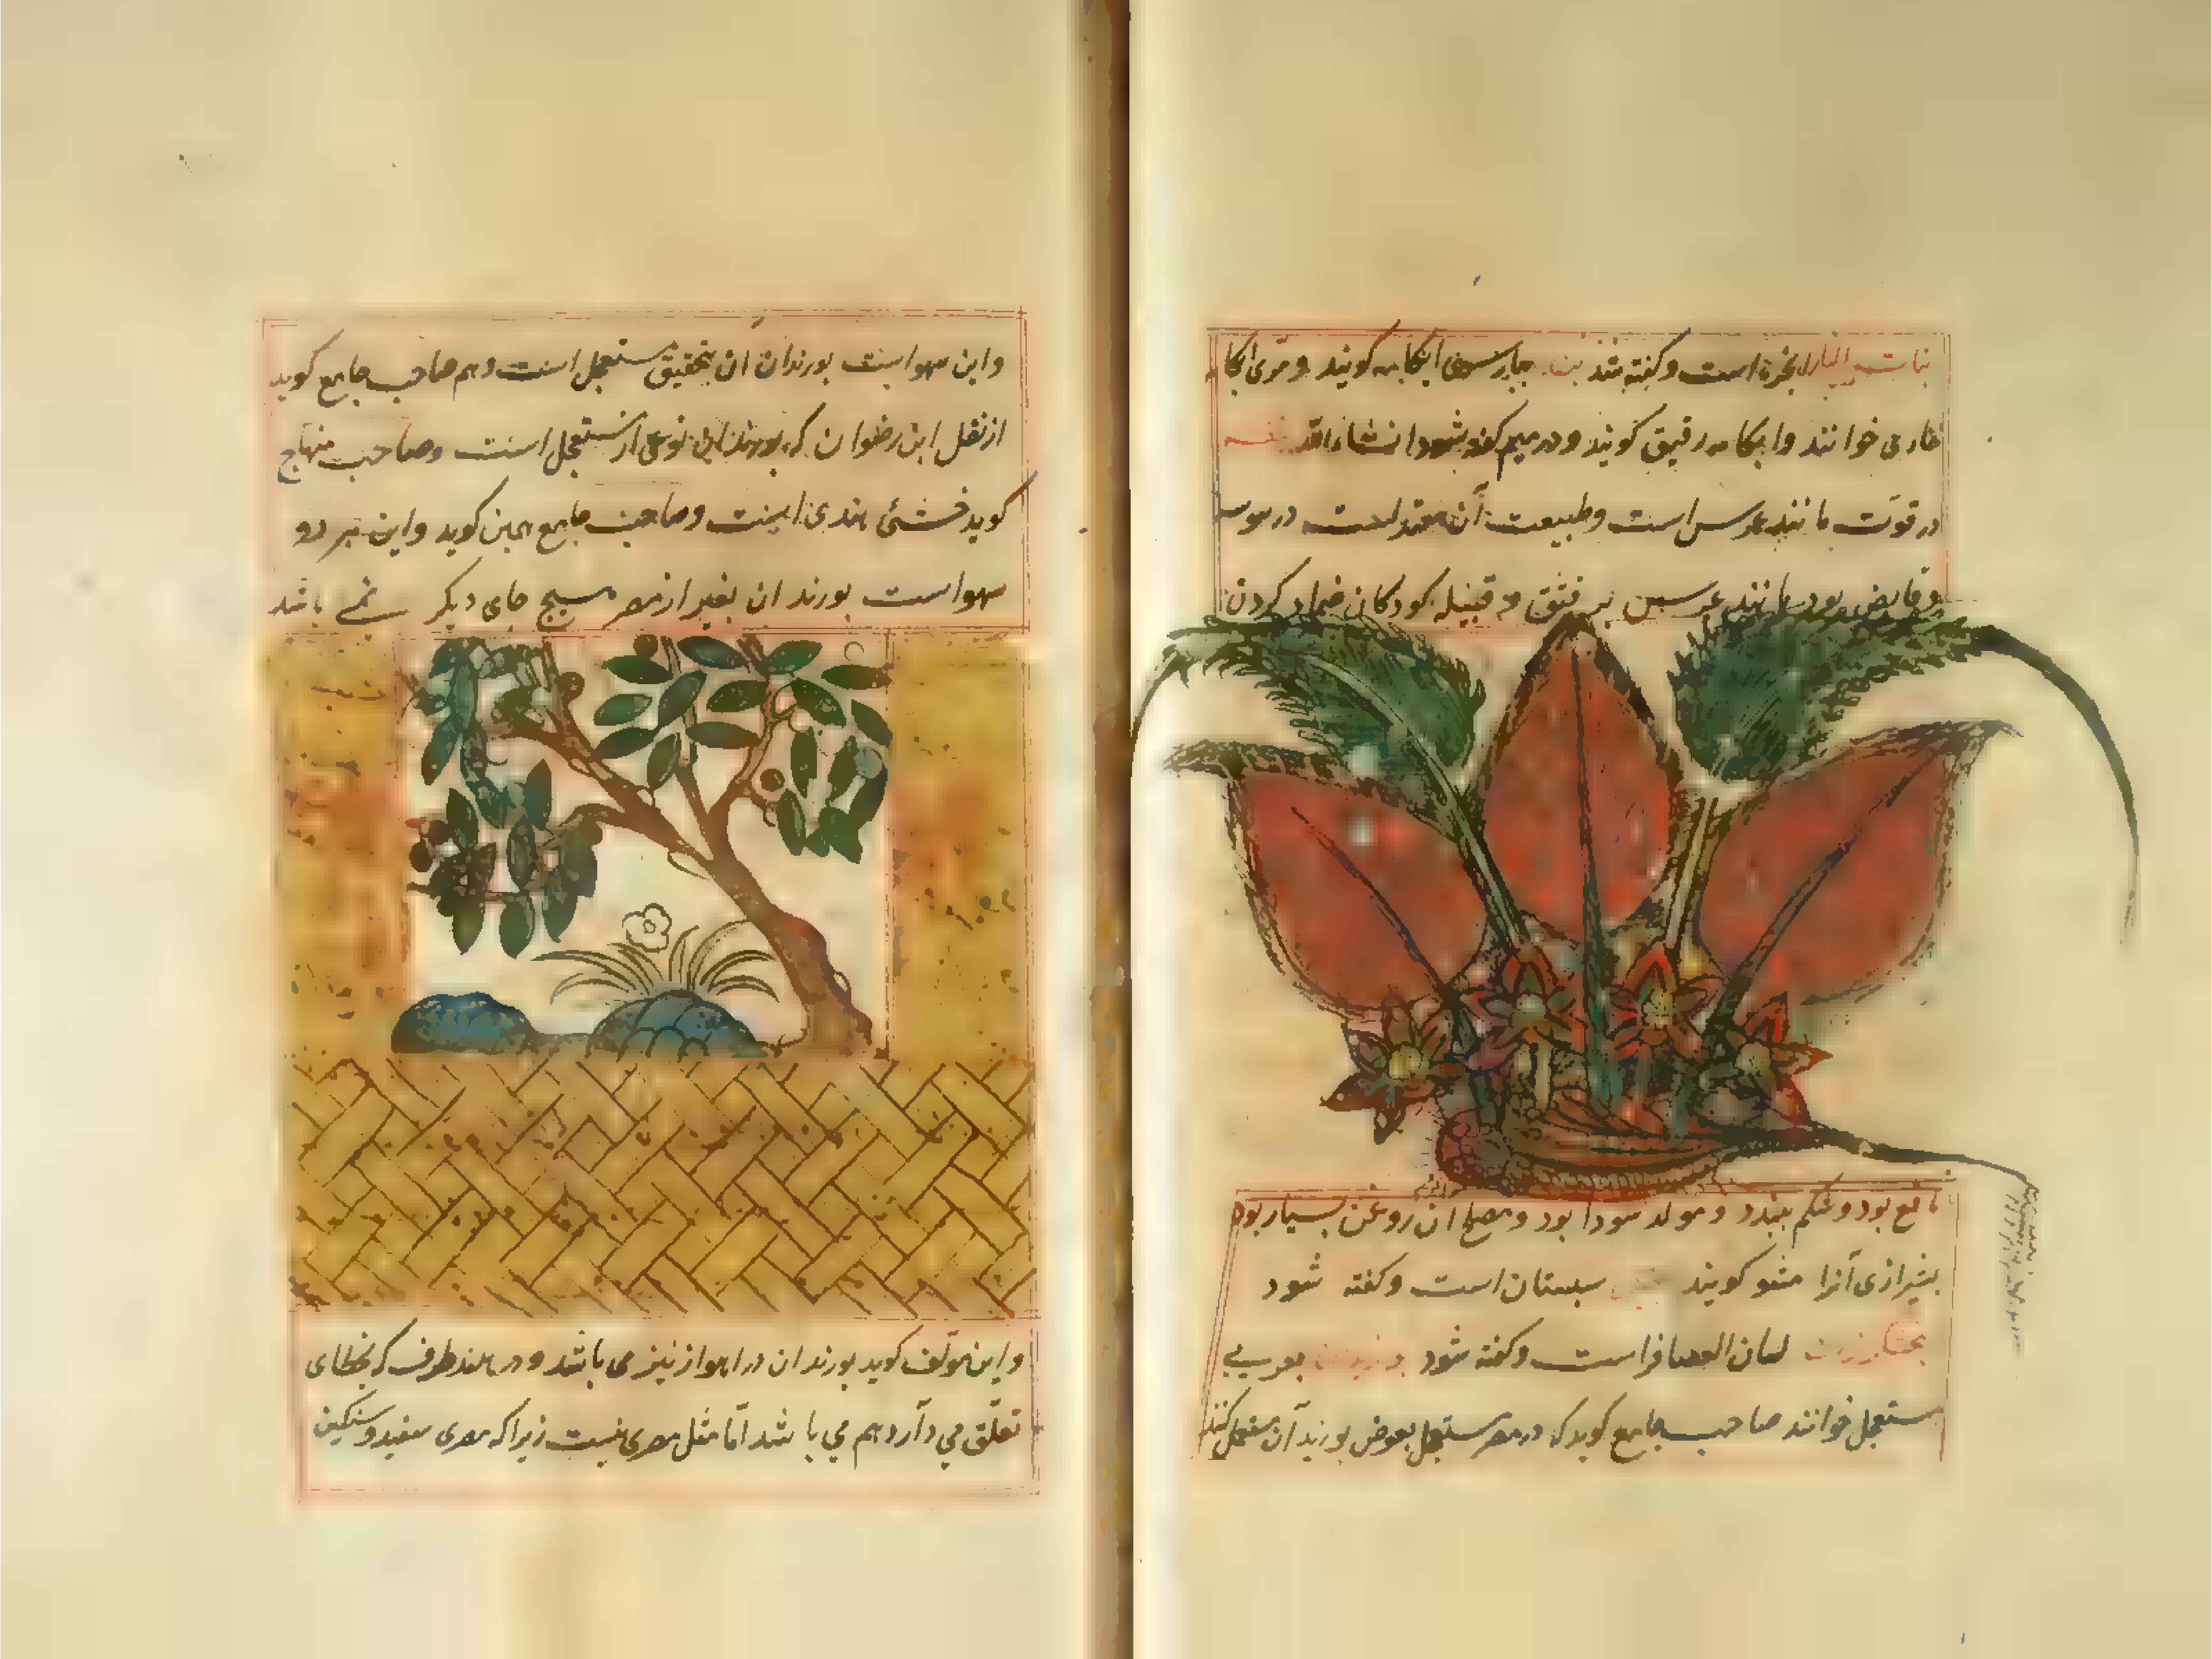 بنات النار انجره است و کفته شد بپارسی ابکامه کویند و مری ابکا
می خوانند و ابکامه رقیق کویند و در میم کفته شود انشاءالله
در قوت مانند عدس است و طبیعت آن معتدلست در یبوست
و قابض بود مانند عدس بر فتق و قیله کودکان ضماد کردن
نافع بود و شکم ببندد و مولد سودا بود و مصلح ان روغن بسیار بود
بشیرازی آنرا مشو کویند سبستان است و کفته شود
لسان العصافر است و کفته شود بعربی
مستعجل خوانند صاحب جامع کوید که در مصر مستعجل بعوض بوزیدان مستعمل کنند
و این سهو است بوزندان ان بتحقیق مستعجل است و هم صاحب جامع کوید
از نقل ابن رضوان که بوزندان نوعی از مستعجل است و صاحب منهاج
کوید هندی است و صاحب جامع همین کوید و این هر دو
سهو است بوزندان بغیر از مصر هیچ جای دیکر نمی باشد
و این مولف کوید بوزندان در اهواز نیز می باشد و در هند طرف که بخطای
تعلق می دآرد هم می باشد امّا مثل مصری نیست زیرا که مصری سفید و سنکین